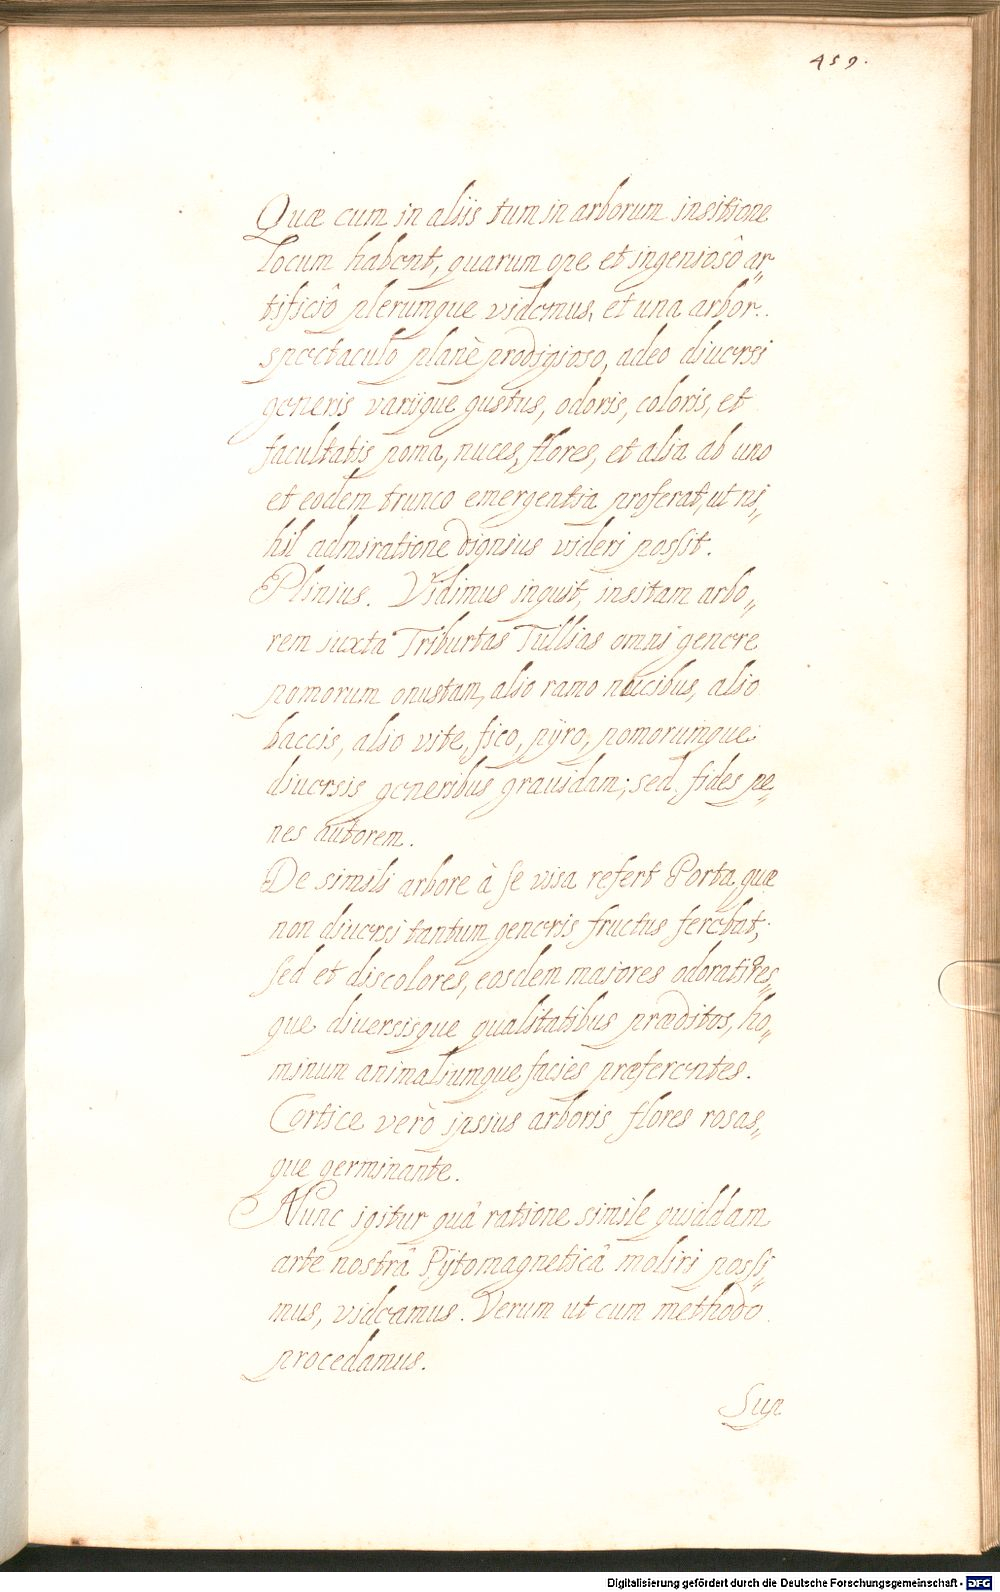 459.
Quæ cum in aliis tum in arborum insitione
locum habent, quarum ope et ingeniosô ar„
tificiô plerumque videmus, et una arbor.
spectaculo planè prodigioso, adeo diuersi
generis variique gustus, odoris, coloris, et
facultatis poma, nuces, flores, et alia ab uno
et eodem trunco emergentia proferat, ut ni„
hil admiratione dignius videri possit.
Plinius. Vidimus inquit, insitam arbo„
rem iuxta Triburtas Tullias omni genere
pomorum onustam, alio ramo nucibus, alio
baccis, alio vite, fico, pyro, pomorumque
diuersis generibus grauidam; sed fides pe„
nes autorem.
De simili arbore à se visa refert Porta, quæ
non diuersi tantum generis fructus ferebat;
sed et discolores, eosdem maiores odoratiores„
que diversisque qualitatibus præditos, ho„
minum animaliumque facies præferentes.
Cortice verò ipsius arboris flores rosas„
que germinante.
Nunc igitur quâ ratione simile quiddam
arte nostrâ Pÿtomagneticâ moliri possi„
mus, videamus. Verum ut cum methodo
procedamus.
Sup
Digitalisierung gefördert durch die Deutsche Forschungsgemeinschaft - DFG